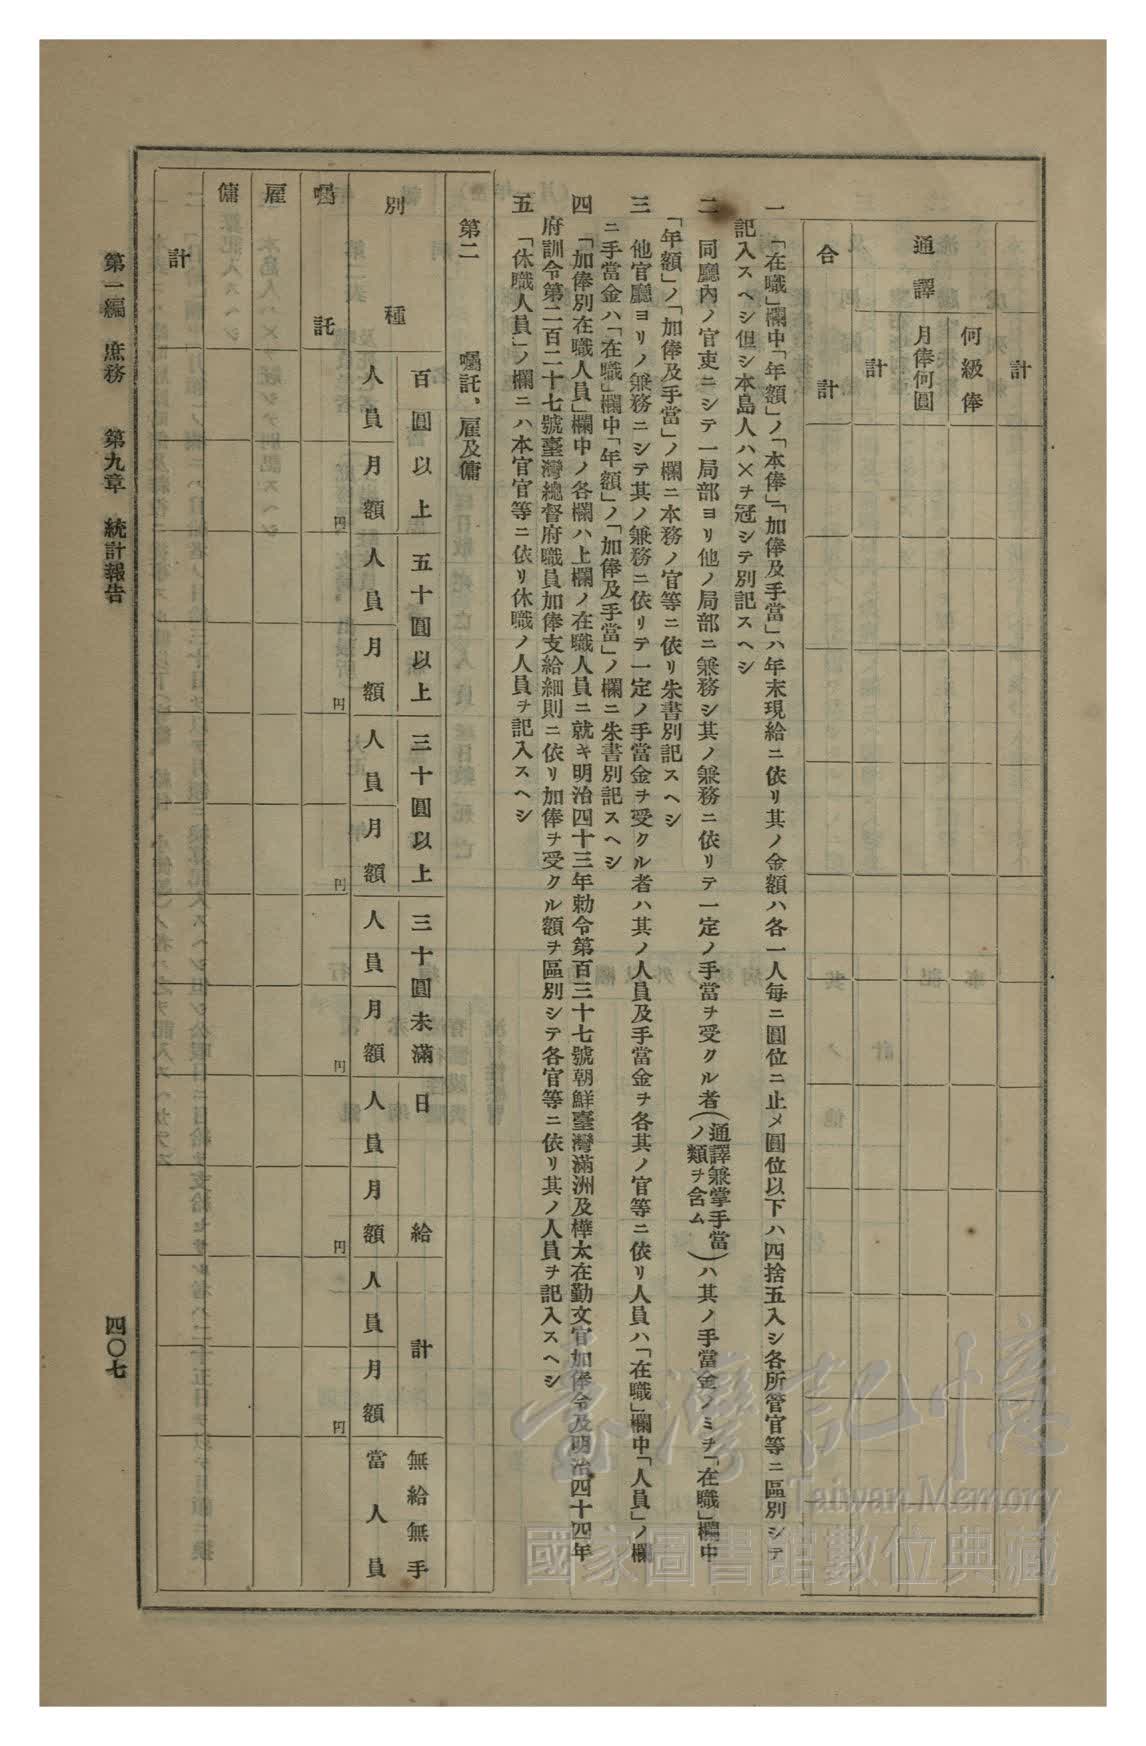 計
通譯
何級俸
月俸何圓
計
合計
一　「在職」欄中「年額」ノ「本俸」「加俸及手當」ハ年末現給ニ依リ其ノ金額ハ各一人每ニ圓位ニ止メ圓位以下ハ四捨五入シ各所管官等ニ區別シテ
記入スヘシ但シ本島人ハ×ヲ冠シテ別記スヘシ
二　同廳內ノ官吏ニシテ一局部ヨリ他ノ局部ニ兼務シ其ノ兼務ニ依リテ一定ノ手當ヲ受クル者(通譯兼掌手當ノ類ヲ含ム)ハ其ノ手當金ノミヲ「在職」欄中
「年額」ノ「加俸及手當」ノ欄ニ本務ノ官等ニ依リ朱書別記スヘシ
三　他官廳ヨリノ兼務ニシテ其ノ兼務ニ依リテ一定ノ手當金ヲ受クル者ハ其ノ人員及手當金ヲ各其ノ官等ニ依リ人員ハ「在職」欄中「人員」ノ欄
ニ手當金ハ「在職」欄中「年額」ノ「加俸及手當」ノ欄ニ朱書別記スヘシ
四　「加俸別在職人員」欄中ノ各欄ハ上欄ノ在職人員ニ就キ明治四十三年勅令第百三十七號朝鮮臺灣滿洲及樺太在勤文官加俸令及明治四十四年
府訓令第二百二十七號臺灣總督府職員加俸支給細則ニ依リ加俸ヲ受クル額ヲ區別シテ各官等ニ依リ其ノ人員ヲ記入スヘシ
五　「休職人員」ノ欄ニハ本官官等ニ依リ休職ノ人員ヲ記入スヘシ
第二　囑託、雇及傭
種別
百圓以上
五十圓以上
三十圓以上
三十圓未滿
日給
計
無給無手當人員
人員
月額
人員
月額
人員
月額
人員
月額
人員
月額
人員
月額
囑託
円
円
円
円
円
円
雇
傭
計
第一編　庶務　第九章　統計報告
四〇七
臺灣記憶
Taiwan Memory
國家圖書館數位典藏